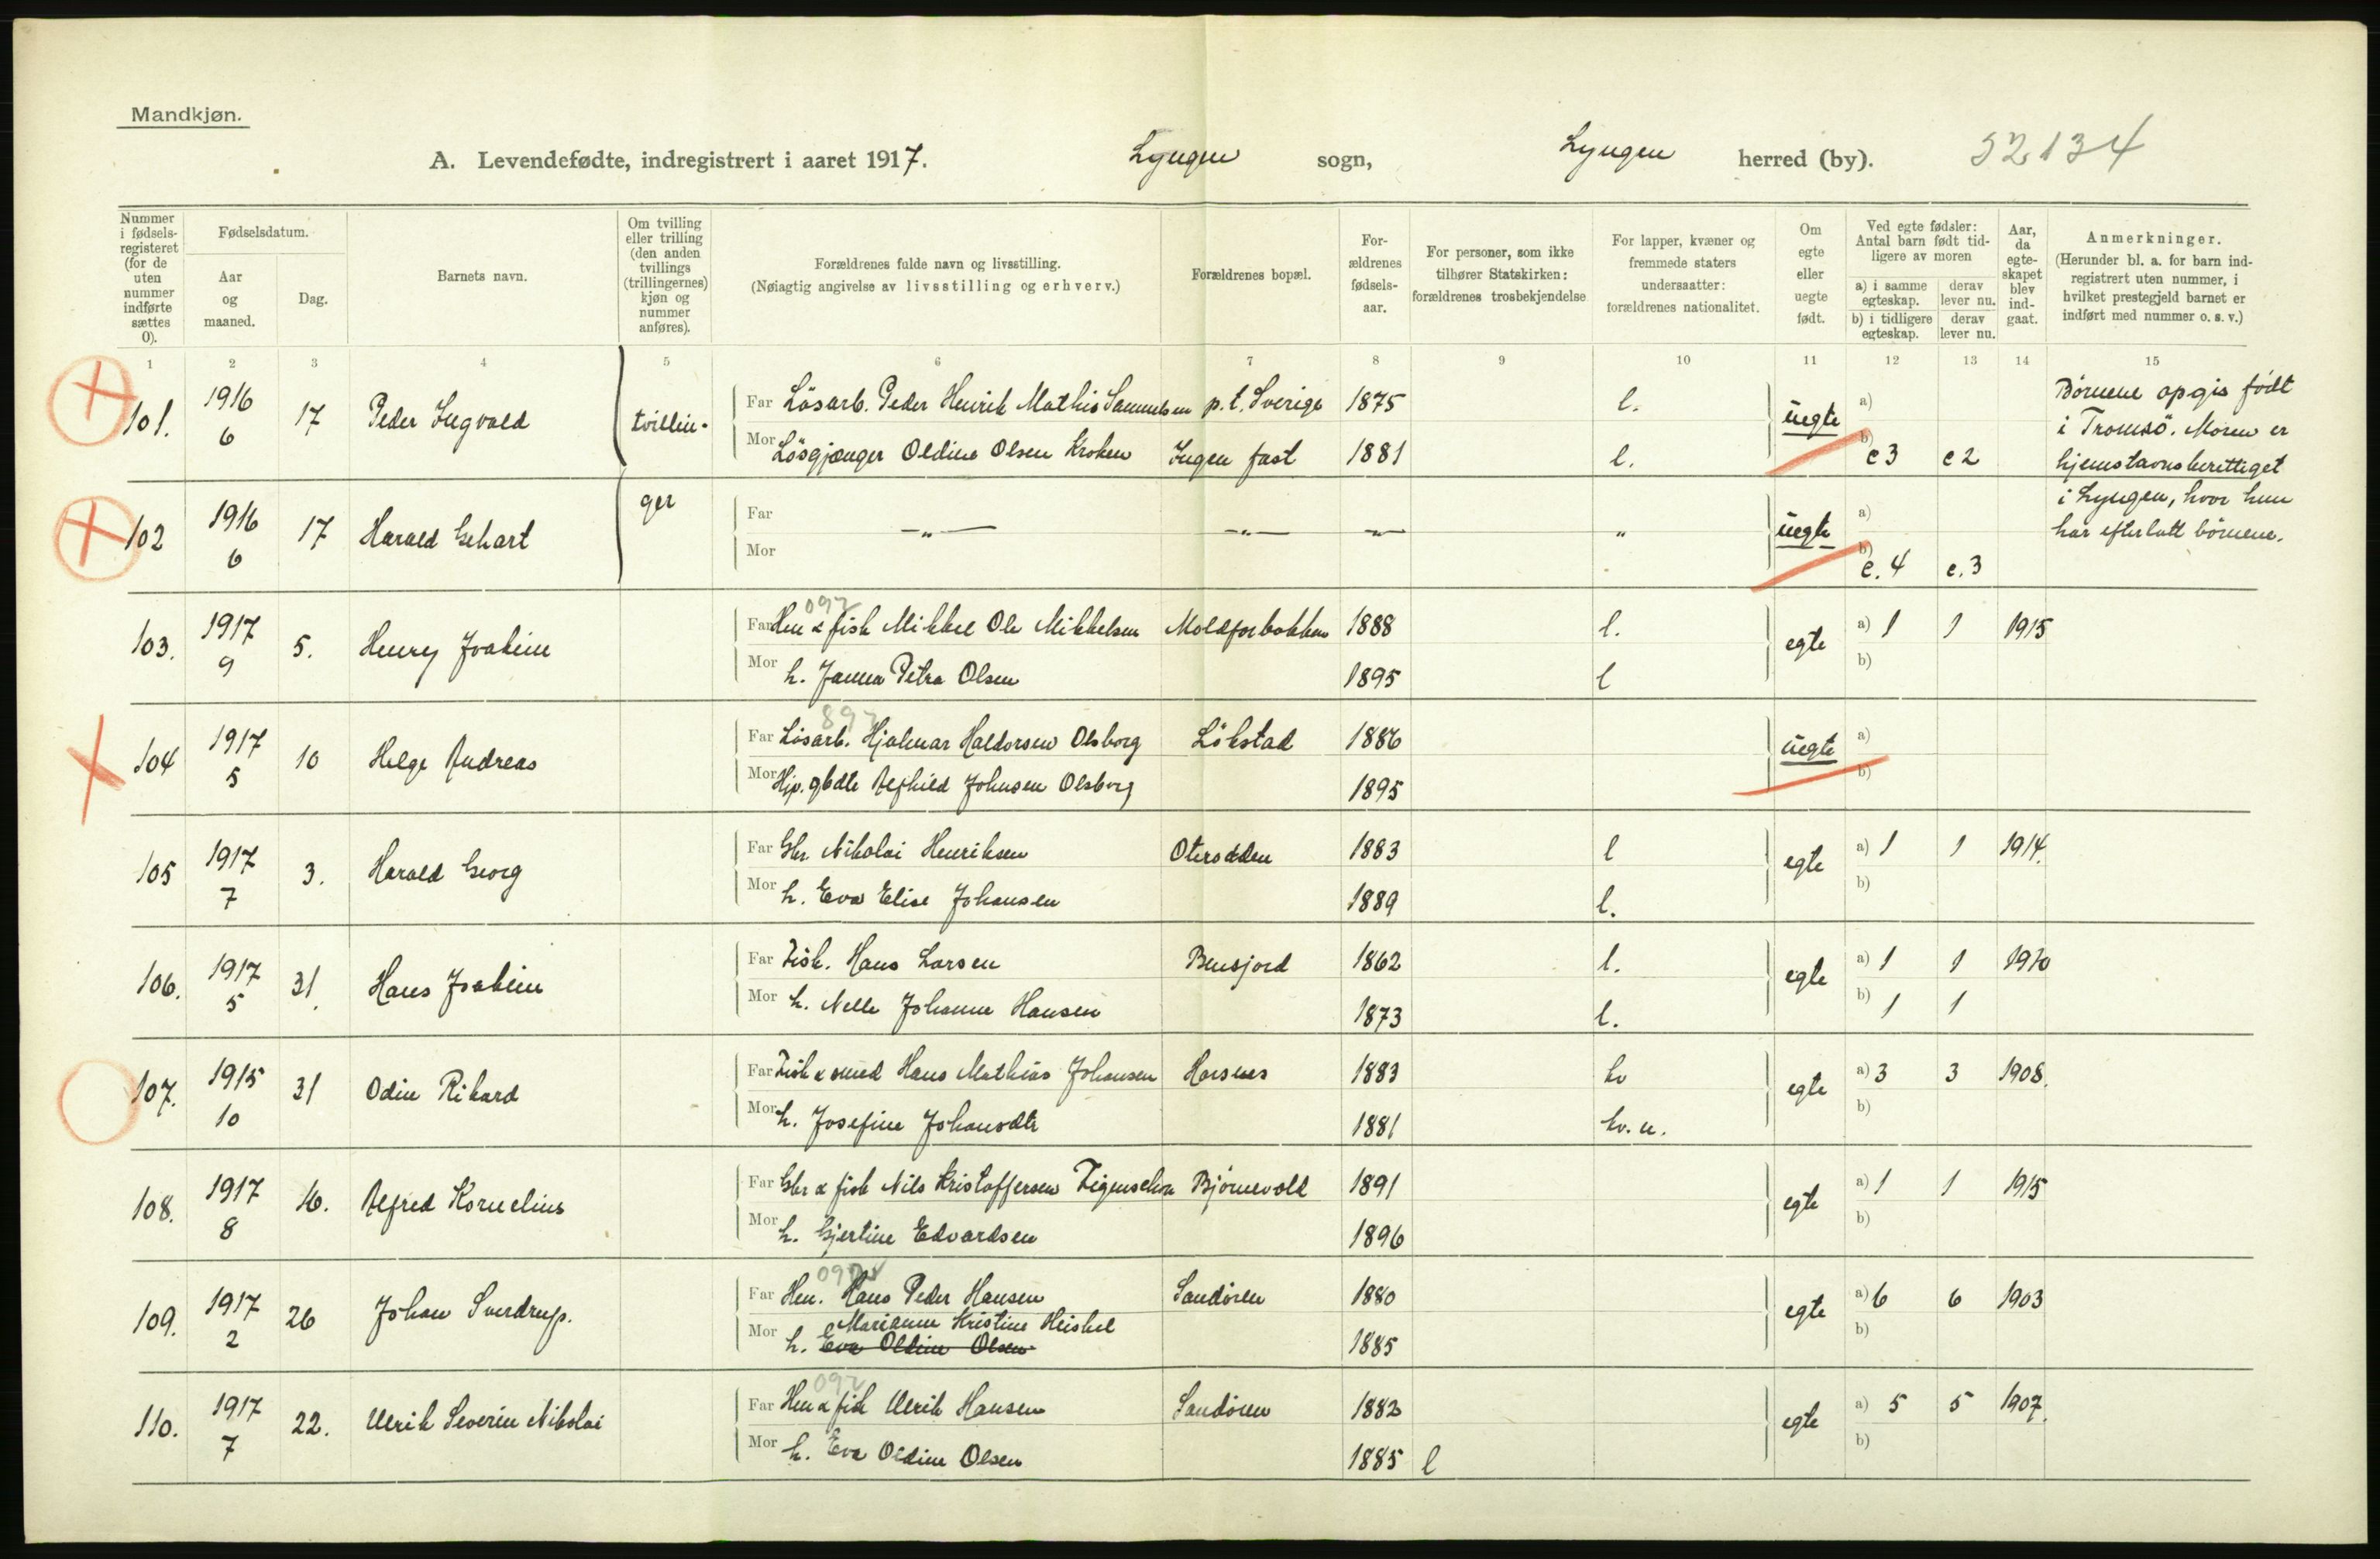 Mandkjøn.
A. Levendefødte, indregistrert i aaret 1917. Lyngen sogn, Lyngen herred (by). 52134
Nummer i fødselsregisteret (for de uten nummer indførte sættes 0).
Fødselsdatum.
Aar og maaned.
Dag.
Barnets navn.
Om tvilling eller trilling (den anden tvillings (trillingernes) kjøn og nummer anføres).
Forældrenes fulde navn og livsstilling.
(Nøiagtig angivelse av livsstilling og erhverv.)
Forældrenes bopæl.
Forældrenes fødselsaar.
For personer, som ikke tilhører Statskirken: forældrenes trosbekjendelse
For lapper, kvæner og fremmede staters undersaatter: forældrenes nationalitet.
Om egte eller uegte født.
Ved egte fødsler: Antal barn født tidligere av moren
a) i samme egteskap. derav lever nu.
b) i tidligere egteskap. derav lever nu.
Aar, da egteskapet blev indgaat.
Anmerkninger.
(Herunder bl. a. for barn indregistrert uten nummer, i hvilket prestegjeld barnet er indført med nummer o. s. v.)
1 2 3 4 5 6 7 8 9 10 11 12 13 14 15
101. 1916 6 17 Peder Ingvald tvillin-
Far Løsarb. Peder Henrik Mathis Samuelsen p. t. Sverige 1875 l. uegte a)
Mor Løsgjænger Oldine Olsen Kroken Ingen fast 1881 l. b) e3 e2
Børnene opgis født
i Tromsö. Moren er
hjemstavnsberettiget
i Lyngen, hvor hun
har efterlatt börnene.
102 1916 6 17 Harald Gehart ger
Far -„- -„- -„- „ uegte a)
Mor b) e. 4 e. 3
103. 1917 9 5. Henry Joakim
097
Far Hem & fisk Mikkel Ole Mikkelsen Moldforbakken 1888 l. egte a) 1 1 1915
Mor h. Janna Petra Olsen 1895 l b)
104 1917 5 10 Helge Andreas
897
Far Løsarb. Hjalmar Haldorsen Olsborg Løkstad 1886 uegte a)
Mor Hjp. gbdtr Alfhild Johnsen Olsborg 1895 b)
105 1917 7 3. Harald Georg
Far Gbr Nikolai Henriksen Oterodden 1883 l egte a) 1 1 1914.
Mor h. Eva Elise Johansen 1889 l. b)
106. 1917 5 31. Hans Joakim
Far Fisk. Hans Larsen Bensjord 1862 l. egte a) 1 1 1910
Mor h. Nelle Johanne Hansen 1873 l. b) 1 1
107. 1915 10 31 Odin Rikard
Far Fisk & smed Hans Mathias Johansen Horsnes 1883 kv egte a) 3 3 1908.
Mor h. Josefine Johansdtr 1881 kv. n. b)
108. 1917 8 16. Alfred Kornelius
Far Gbr & fisk Nils Kristoffersen Figenschou Bjørnevold 1891 egte a) 1 1 1915
Mor h. Gjertine Edvardsen 1896 b)
109. 1917 2 26 Johan Sverdrup.
097
Far Hem. Hans Peder Hansen Sandören 1880 egte a) 6 6 1903
Marianne Kristine Heiskel
Mor h. Eva Oldine Olsen 1885 b)
110. 1917 7 22. Ulrik Severin Nikolai
097
Far Hem & fisk Ulrik Hansen Sandören 1882 egte a) 5 5 1907.
Mor h. Eva Oldine Olsen 1885 l b)